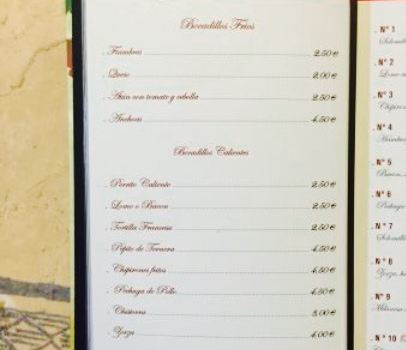 Bocadillos Frios
. Fiambres 2.50 €
. Queso 2.00 €
. Atún con tomate y cebolla 2.50 €
. Anchoas 4.50 €
Bocadillos Calientes
. Perrito Caliente 2.50 €
. Lomo o Bacon 2.50 €
. Tortilla Francesa 2.50 €
. Pepito de Ternera 4.50 €
. Chipirones fritos 4.50 €
. Pechuga de Pollo 4.50 €
. Chistorra 3.00 €
. Zorza 4.00 €
. Nº 1
. Nº 2
Lomo
. Nº 3
. Nº 4
. Nº 5
Bacon,
. Nº 6
Pechuga
. Nº 7
. Nº 8
Zorza,
. Nº 9
Milanesa
. Nº 10